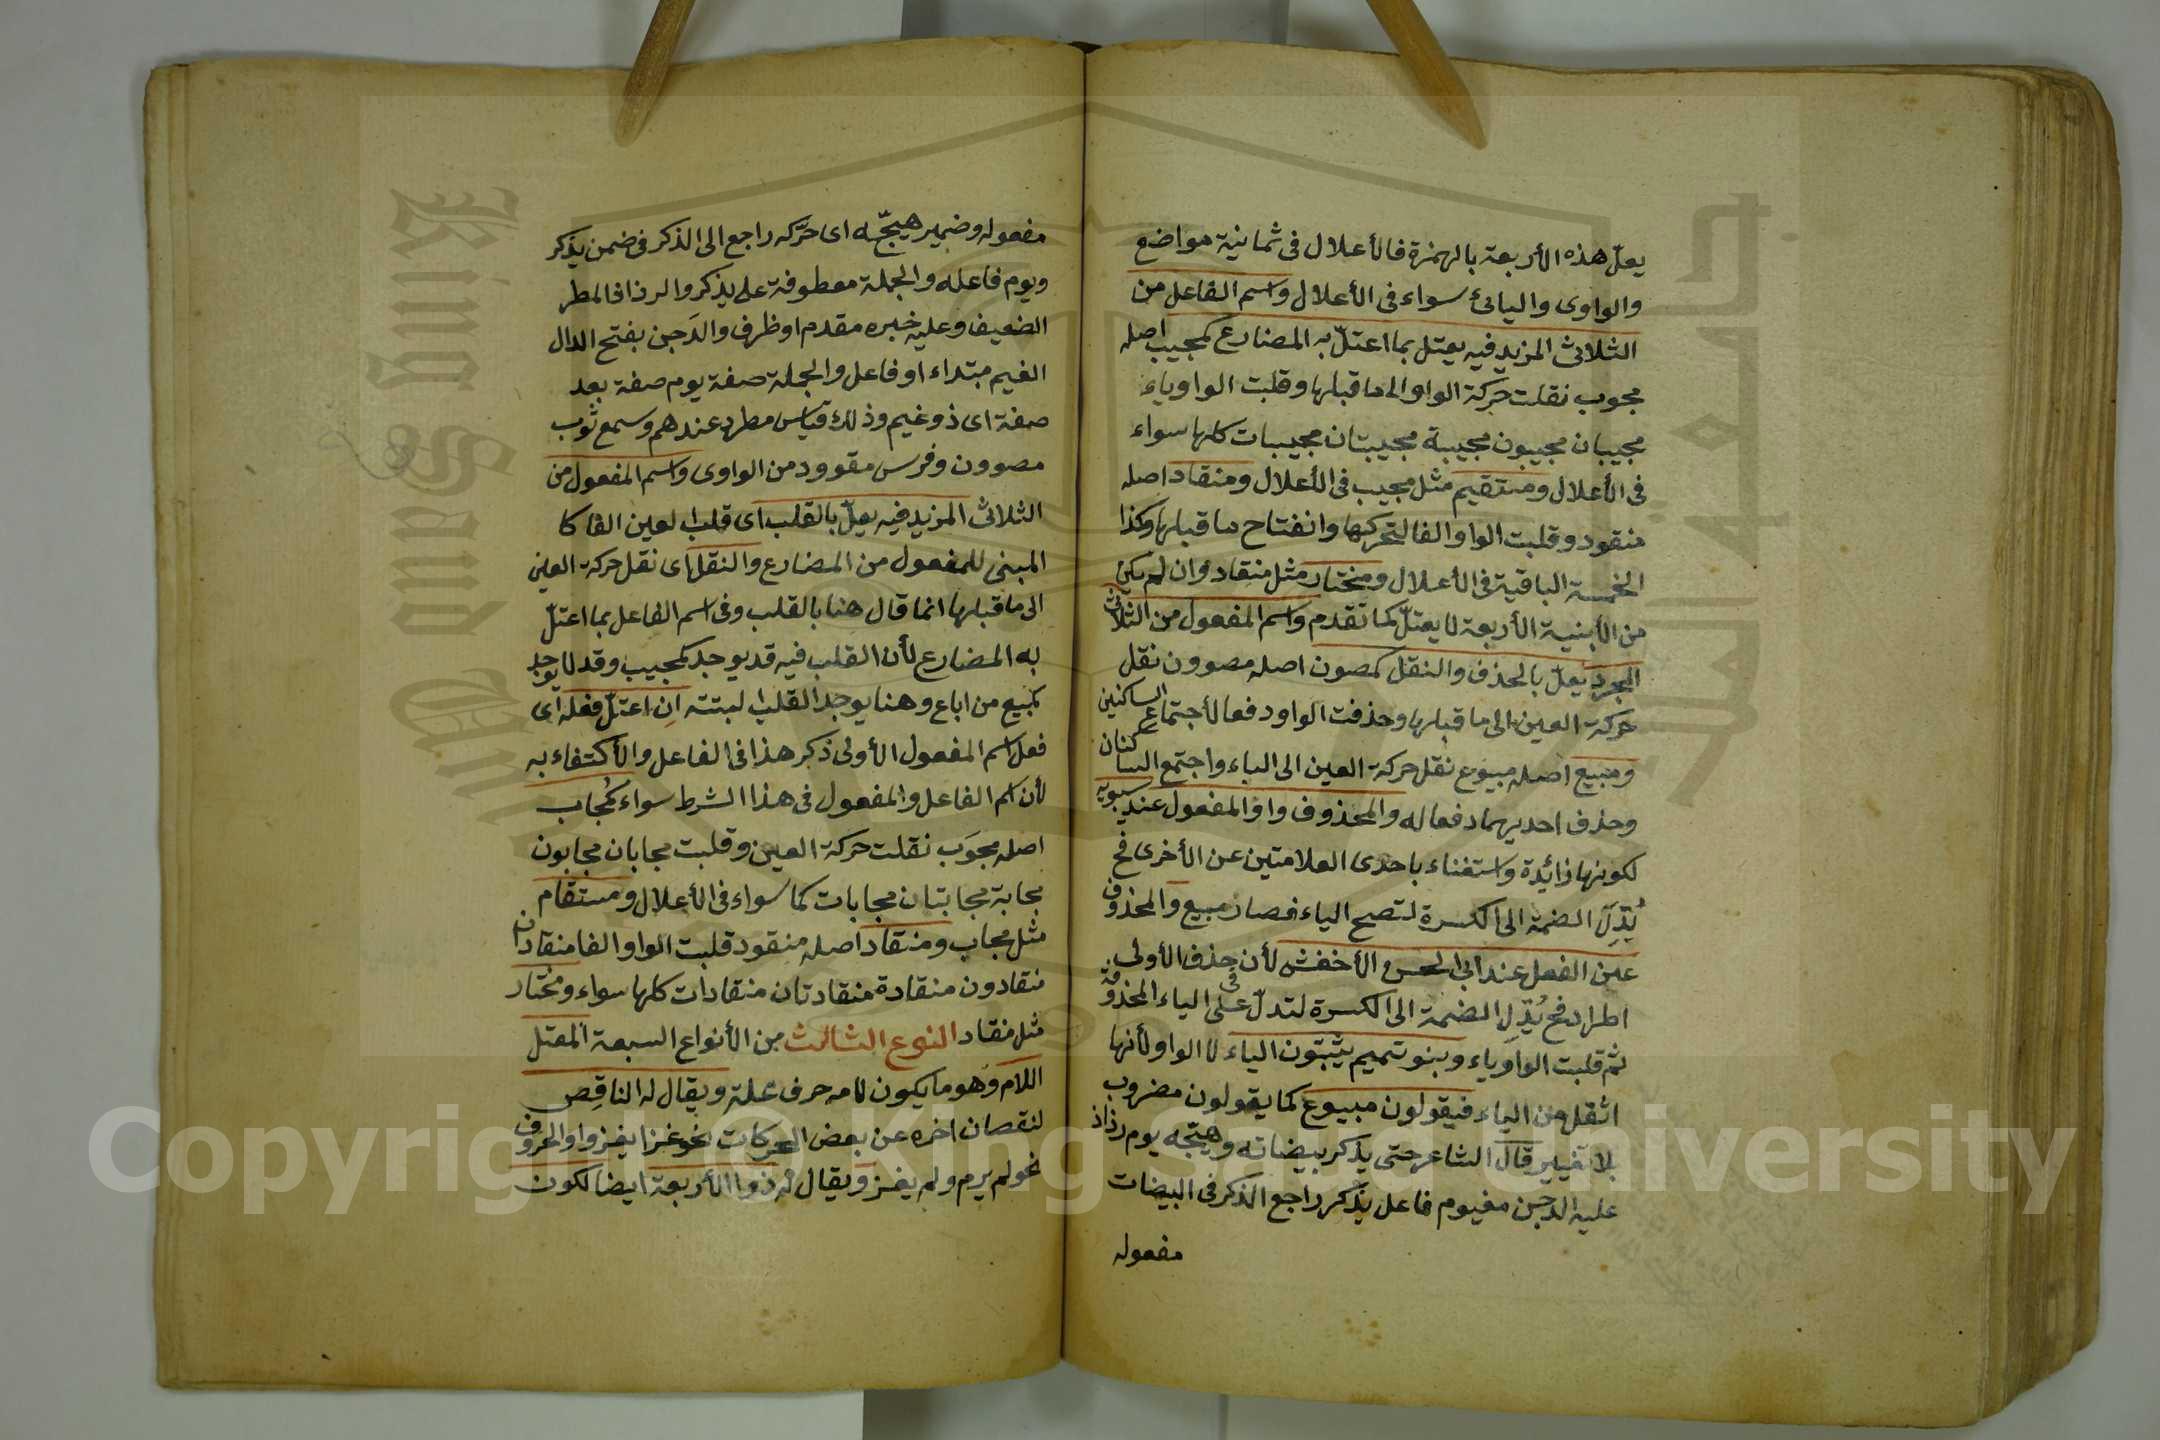 يعلّ هذه الأربعة بالهمزة فالأعلال فى ثمانية مواضع
والواوى واليائى سواء فى الأعلال واسم الفاعل من
الثلاثى المزيد فيه يعتل بما اعتلّ به المضارع كمجيب اصله
مجوب نقلت حركة الواو الى ما قبلها وقلبت الواو ياء
مجيبان مجيبون مجيبة مجيبتان مجيبات كلها سواء
فى الأعلال ومستقيم مثل مجيب فى الأعلال ومنقاد اصله
منقود وقلبت الواو الفا لتحركها وانفتاح ما قبلها وكذا
الخمسة الباقية فى الأعلال ومختار مثل منقاد وان لم يكن
من الأبنية الأربعة لا يعتلّ كما تقدم واسم المفعول من الثلاثى
المجرد يعلّ بالحذف والنقل كمصون اصله مصوون نقل
حركة العين الى ما قبلها وحذفت الواو دفعا لأجتماع الساكنين
ومبيع اصله مبيوع نقل حركة العين الى الباء واجتمع الساكنان
وحذف احديهما دفعا له والمحذوف واو المفعول عند سيبويه
لكونها زائدة واستغناء باحدى العلامتين عن الأخرى فح
بُدّل الضمة الى الكسرة لتصح الياء فصار مبيع والمحذوف
عين الفعل عند ابى الحسن الأخفش لأن حذف الأولى
اطراد فح بُدّل الضمة الى الكسرة لتدلّ على الياء المحذوفة
ثم قلبت الواو ياء وبنو تميم يثبتون الياء لا الواو لأنها
اثقل من الياء فيقولون مبيوع كما يقولون مضروب
بلا تغيير قال الشاعر حتى يذكر بيضاته وهيّجه يوم رذاذ
عليه الدجن مغيوم فاعل يذكر راجع الذكر فى البيضات
مفعوله
مفعوله وضمير هيجّه اى حرّكه راجع الى الذكر فى ضمن يذكر
ويوم فاعله والجملة معطوفة على يذكر والرذاذ المطر
الضعيف وعليه خبره مقدم او ظرف والدَجن بفتح الدال
الغيم مبتداء او فاعل والجملة صفة يوم صفة بعد
صفة اى ذو غيم وذلك قياس مطرد عندهم وسمع ثوب
مصوون وفرس مقوود من الواوى واسم المفعول من
الثلاثى المزيد فيه يعلّ بالقلب اى قلب العين الفا كا
المبنى للمفعول من المضارع والنقل اى نقل حركة العين
الى ما قبلها انما قال هنا بالقلب وفى اسم الفاعل بما اعتلّ
به المضارع لأن القلب فيه قد يوجد كمجيب وقد لا يوجد
كمبيع من اباع وهنا يوجد القلب البتته اِن اعتلّ فعله اى
فعل اسم المفعول الأولى ذكر هذا فى الفاعل والأكتفاء به
لأن اسم الفاعل والمفعول فى هذا الشرط سواء كمُجاب
اصله مجوَب نقلت حركة العين وقلبت مجابان مجابون
مجابة مجابتان مجابات كما سواء فى الأعلال ومستقام
مثل مجاب ومنقاد اصله منقود قلبت الواو الفا منقادان
منقادون منقادة منقادتان منقادات كلها سواء ومختار
مثل منقاد النوع الثالث من الأنواع السبعة المعتل
اللام وهو ما يكون لامه حرف علة ويقال له الناقِص
لنقصان اخره عن بعض الحركات نحو غزا يغزوا والحروف
نحو لم يرم ولم يغز ويقال له ذوا الأربعة ايضا لكون
Copyright © King Saud University
King Saud University
جامعة الملك سعود